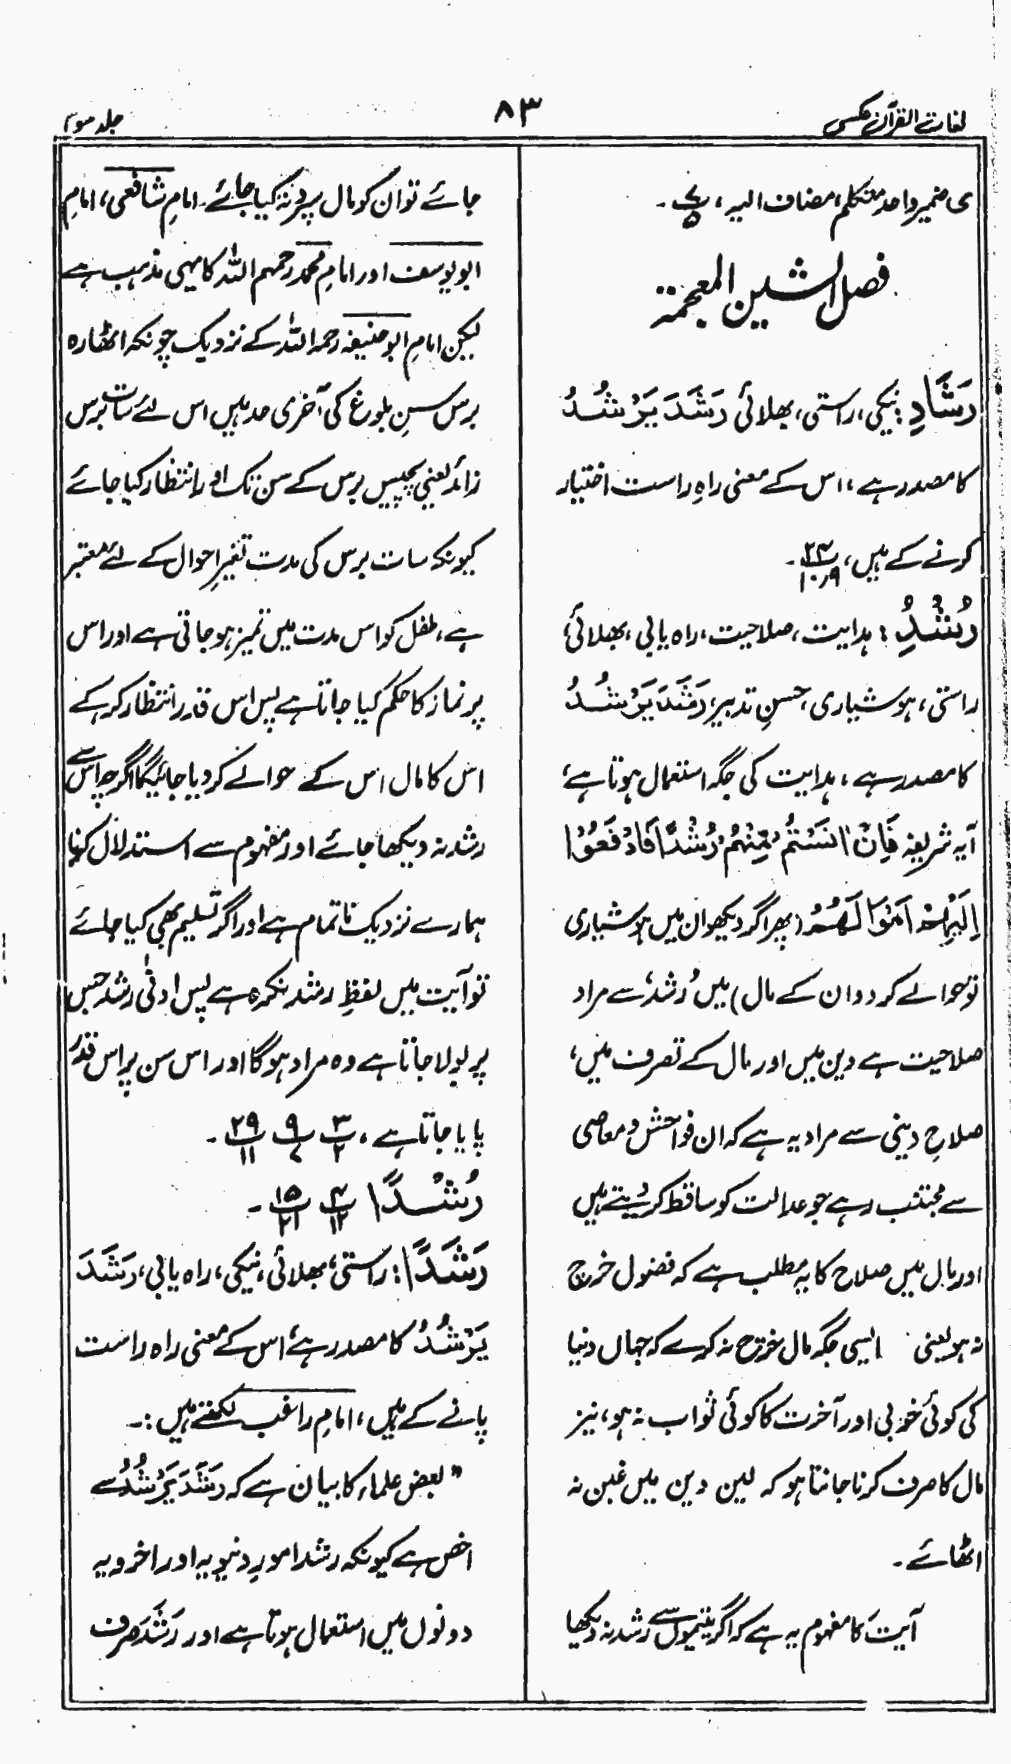 لغات القرآن عکسی
۸۳
جلد سوم
ی ضمیر واحد متکلم، مضاف الیہ،
فصل الشین المعجمۃ
رَشَادِ: نیکی، راستی، بھلائی رَشَدَ یَرْشُدُ
کا مصدر ہے، اس کے معنی راہِ راست اختیار
کرنے کے ہیں، ۲۴/۱۰،۹۔
رُشْدِ: ہدایت، صلاحیت، راہ یابی، بھلائی،
راستی، ہوشیاری، حسنِ تدبیر، رَشَدَ یَرْشُدُ
کا مصدر ہے، ہدایت کی جگہ استعمال ہوتا ہے،
آیہ شریفہ فَاِنْ اٰنَسْتُمْ مِّنْهُمْ رُشْدًا فَادْفَعُوْا
اِلَیْهِمْ اَمْوَالَهُمْ (پھر اگر دیکھو ان میں ہوشیاری
تو حوالے کر دو ان کے مال) میں رُشد سے مراد
صلاحیت ہے دین میں اور مال کے تصرف میں،
صلاحِ دینی سے مراد یہ ہے کہ ان فواحش و معاصی
سے مجتنب رہے جو عدالت کو ساقط کر دیتے ہیں
اور مال میں صلاح کا یہ مطلب ہے کہ فضول خرچ
نہ ہو یعنی ایسی جگہ مال خرچ نہ کرے کہ جہاں دنیا
کی کوئی خوبی اور آخرت کا کوئی ثواب نہ ہو، نیز
مال کا صرف کرنا جانتا ہو کہ لین دین میں غبن نہ
اٹھائے۔
آیت کا مفہوم یہ ہے کہ اگر یتیموں سے رشد نہ دیکھا
جائے تو ان کو مال سپرد نہ کیا جائے۔ امام شافعی، امام
ابو یوسف اور امام محمد رحمہم اللہ کا یہی مذہب ہے
لیکن امام ابو حنیفہ رحمہ اللہ کے نزدیک چونکہ اٹھارہ
برس سنِ بلوغ کی آخری حد ہیں اس لئے سات برس
زائد یعنی پچیس برس کے سن تک اور انتظار کیا جائے
کیونکہ سات برس کی مدت تغیرِ احوال کے لئے معتبر
ہے، طفل کو اس مدت میں تمیز ہو جاتی ہے اور اس
پر نماز کا حکم کیا جاتا ہے پس اس قدر انتظار کر کے
اس کا مال اس کے حوالے کر دیا جائیگا اگرچہ اس سے
رشد نہ دیکھا جائے اور مفہوم سے استدلال کرنا
ہمارے نزدیک ناتمام ہے اور اگر تسلیم بھی کیا جائے
تو آیت میں لفظِ رشد نکرہ ہے پس ادنیٰ رشد جس
پر بولا جاتا ہے وہ مراد ہوگا اور اس سن پر اس قدر
پایا جاتا ہے، ۳/۲ ۹/۷ ۲۹/۱۱۔
رُشْدًا ۴/۱۲ ۱۵/۲۱۔
رَشَدًا: راستی، بھلائی، نیکی، راہ یابی، رَشَدَ
یَرْشُدُ کا مصدر ہے، اس کے معنی راہ راست
پانے کے ہیں، امام راغب لکھتے ہیں:۔
"بعض علماء کا بیان ہے کہ رَشَدَ یَرْشُدُ سے
اخص ہے کیونکہ رشد امورِ دنیویہ اور اخرویہ
دونوں میں استعمال ہوتا ہے اور رَشَد صرف